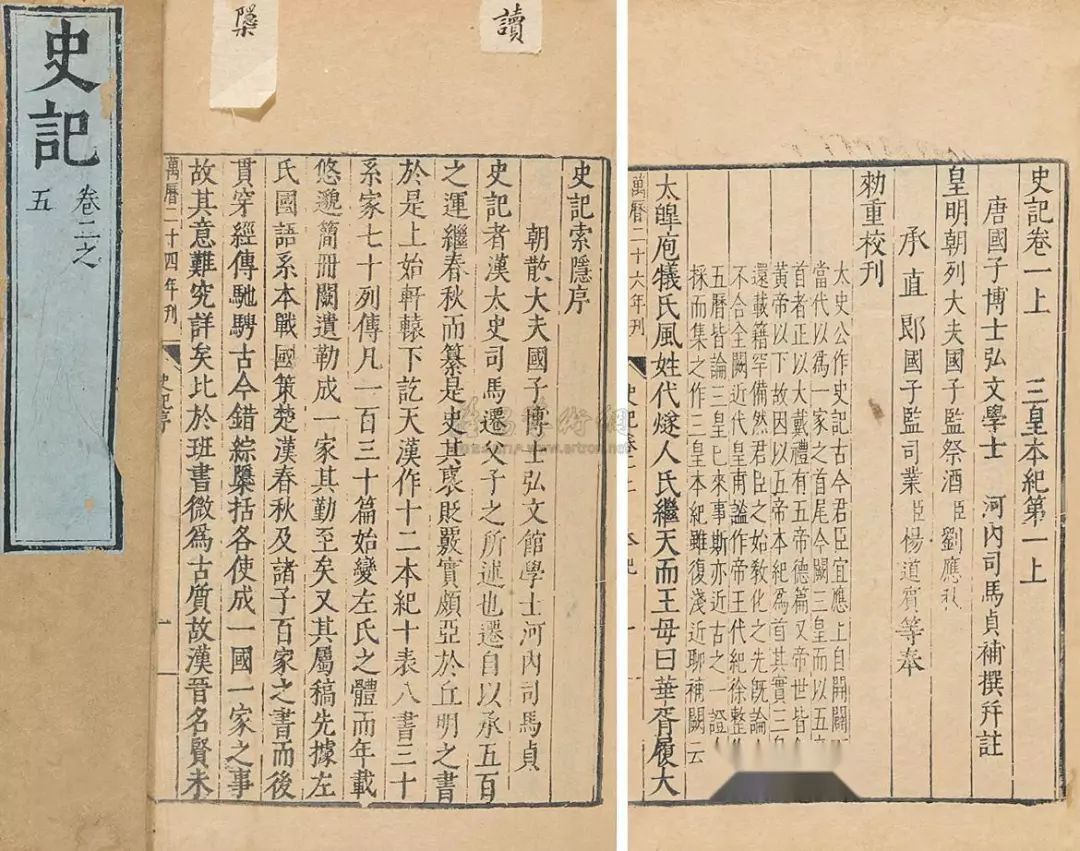 史記
卷二之
五
檃
讀
史記索隱序
朝散大夫國子博士弘文館學士河內司馬貞
史記者漢太史司馬遷父子之所述也遷自以承五百
之運繼春秋而纂是史其裦貶覈實頗亞於丘明之書
於是上始軒轅下訖天漢作十二本紀十表八書三十
系家七十列傳凡一百三十篇始變左氏之體而年載
悠邈簡冊闕遺勒成一家其勤至矣又其屬稿先據左
氏國語系本戰國策楚漢春秋及諸子百家之書而後
貫穿經傳馳騁古今錯綜檃括各使成一國一家之事
故其意難究詳矣比於班書微爲古質故漢晉名賢未
萬曆二十四年刊
史記序
一
史記卷一上 三皇本紀第一上
唐國子博士弘文學士 河內司馬貞補撰幷註
皇明朝列大夫國子監祭酒臣劉應秋
承直郎國子監司業臣楊道賓等奉
勑重校刊
太史公作史記古今君臣宜應上自開闢
當代以爲一家之首尾今闕三皇而以五
首者正以大戴禮有五帝德篇又帝世皆
黃帝以下故因以五帝本紀爲首其實三
還載籍罕備然君臣之始敎化之先旣論
不合全闕近代皇甫謐作帝王代紀徐整
五曆皆論三皇已來事斯亦近古之一證
採而集之作三皇本紀雖復淺近聊補闕云
太皥庖犧氏風姓代燧人氏繼天而王母曰華胥履大
萬曆二十六年刊
史記卷一
本紀
一